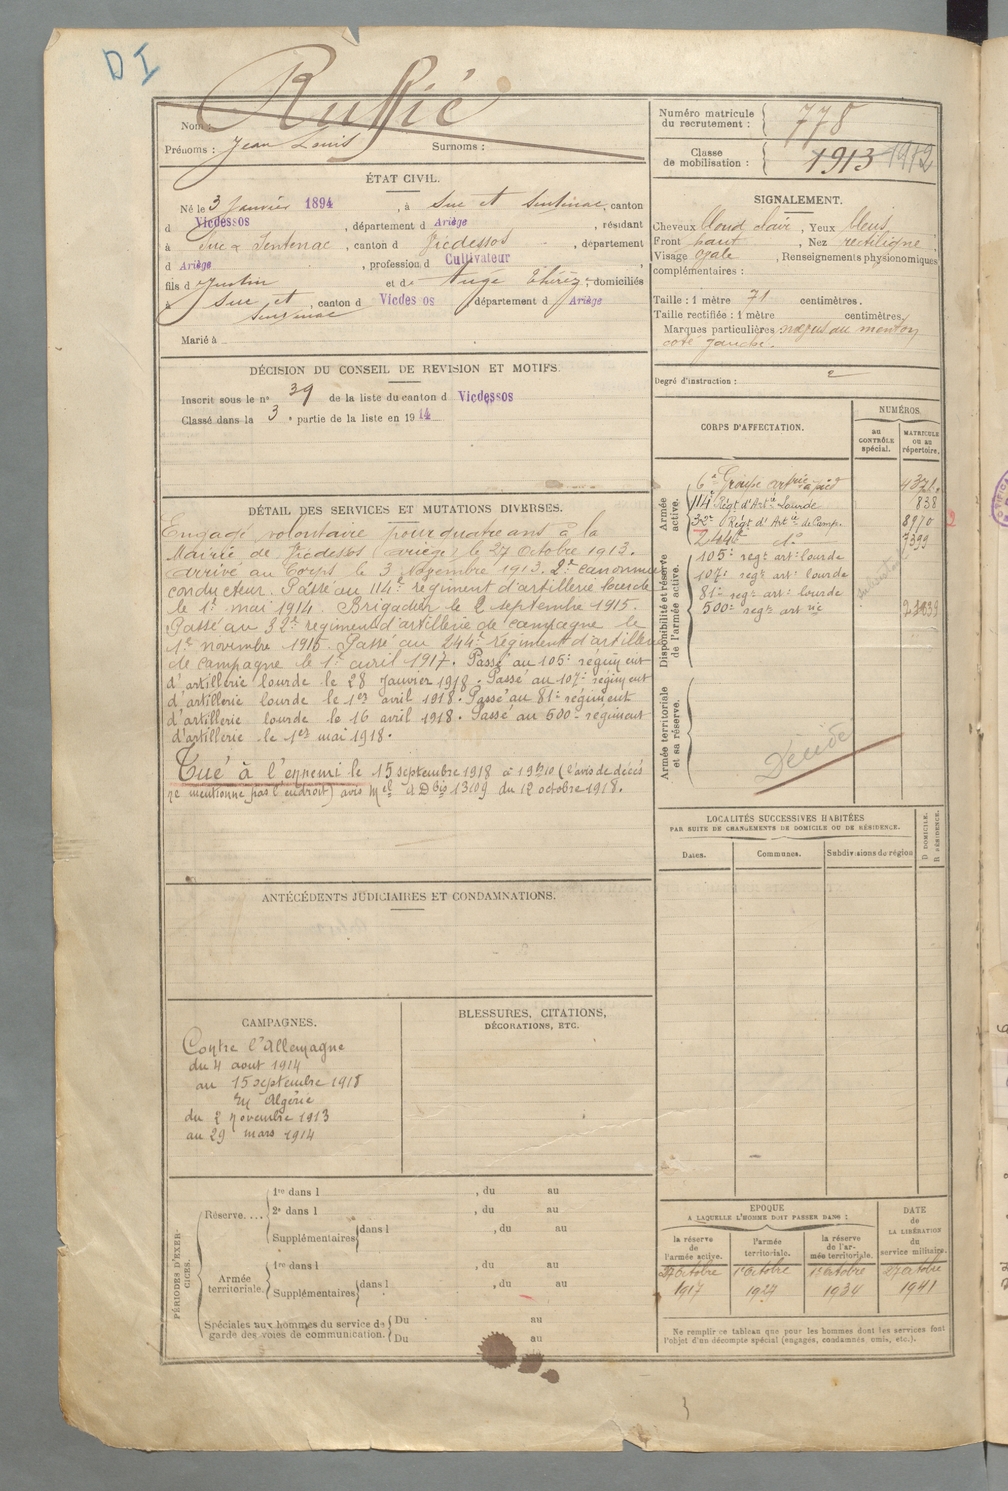 D I
Nom : Ruffié
Prénoms : Jean Louis Surnoms :
Numéro matricule du recrutement : 778
Classe de mobilisation : 1913 1912
ÉTAT CIVIL.
Né le 3 Janvier 1894, à Suc et Sentenac, canton
d Vicdessos, département d Ariège, résidant
à Suc & Sentenac, canton d Vicdessos, département
d Ariège, profession d Cultivateur
fils d Justin et de Augé, domiciliés
à Suc et Sentenac, canton d Vicdessos, département d Ariège
Marié à
SIGNALEMENT.
Cheveux blond clair, Yeux bleus
Front haut, Nez rectiligne
Visage ovale, Renseignements physionomiques
complémentaires :
Taille : 1 mètre 71 centimètres.
Taille rectifiée : 1 mètre centimètres.
Marques particulières au menton
coté gauche.
Degré d'instruction : 2
DÉCISION DU CONSEIL DE REVISION ET MOTIFS.
Inscrit sous le n° 39 de la liste du canton d Vicdessos
Classé dans la 3e partie de la liste en 1914
DÉTAIL DES SERVICES ET MUTATIONS DIVERSES.
Engagé volontaire pour quatre ans à la
Mairie de Vicdessos (Ariège) le 27 Octobre 1913.
Arrivé au Corps le 3 Novembre 1913. 2e canonnier
conducteur. Passé au 114e régiment d'artillerie lourde
le 1er mai 1914. Brigadier le 2 septembre 1915.
Passé au 32e régiment d'artillerie de campagne le
1er novembre 1915. Passé au 244e régiment d'artillerie
de campagne le 1er avril 1917. Passé au 105e régiment
d'artillerie lourde le 28 Janvier 1918. Passé au 107e régiment
d'artillerie lourde le 1er avril 1918. Passé au 81e régiment
d'artillerie lourde le 16 avril 1918. Passé au 500e régiment
d'artillerie le 1er mai 1918.
Tué à l'ennemi le 15 septembre 1918 à 19h10 (l'avis de décès
ne mentionne pas l'endroit) avis Mel du 12 octobre 1918.
CORPS D'AFFECTATION.
NUMÉROS.
au CONTRÔLE spécial.
MATRICULE ou au répertoire.
Armée active.
6e Groupe artrie à pied 4321.
114e Régt d'Artie Lourde 838
32e Régt d'Artie de Camp. 8970
244e do 7399
Disponibilité et réserve de l'armée active.
105e regt art. lourde
107e regt art. lourde
81e regt art. lourde
500e regt artie
Armée territoriale et sa réserve.
Décédé
LOCALITÉS SUCCESSIVES HABITÉES
PAR SUITE DE CHANGEMENTS DE DOMICILE OU DE RÉSIDENCE.
Dates. Communes. Subdivisions de région D DOMICILE. R RÉSIDENCE.
ANTÉCÉDENTS JUDICIAIRES ET CONDAMNATIONS.
CAMPAGNES.
Contre l'Allemagne
du 4 aout 1914
au 15 septembre 1918
En Algérie
du 2 novembre 1913
au 29 mars 1914
BLESSURES, CITATIONS,
DÉCORATIONS, ETC.
PÉRIODES D'EXERCICES.
Réserve....
1re dans l , du au
2e dans l , du au
Supplémentaires dans l , du au
Armée territoriale.
1re dans l , du au
Supplémentaires dans l , du au
Spéciales aux hommes du service de garde des voies de communication.
Du au
Du au
EPOQUE
A LAQUELLE L'HOMME DOIT PASSER DANS :
la réserve de l'armée active.
l'armée territoriale.
la réserve de l'armée territoriale.
DATE de LA LIBÉRATION du service militaire.
27 Octobre 1917
1er Octobre 1927
1er Octobre 1934
27 octobre 1941
Ne remplir ce tableau que pour les hommes dont les services font
l'objet d'un décompte spécial (engagés, condamnés, omis, etc.).